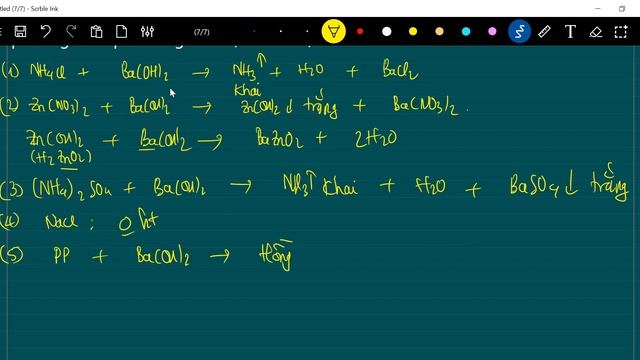 tled (7/7) - Scrble Ink
(7/7)
(1) NH4Cl + Ba(OH)2 → NH3↑ + H2O + BaCl2
khai
(2) Zn(NO3)2 + Ba(OH)2 → Zn(OH)2↓ trắng + Ba(NO3)2.
Zn(OH)2 + Ba(OH)2 → BaZnO2 + 2H2O
(H2ZnO2)
(3) (NH4)2SO4 + Ba(OH)2 → NH3↑ khai + H2O + BaSO4↓ trắng
(4) NaCl : 0 ht
(5) PP + Ba(OH)2 → Hồng